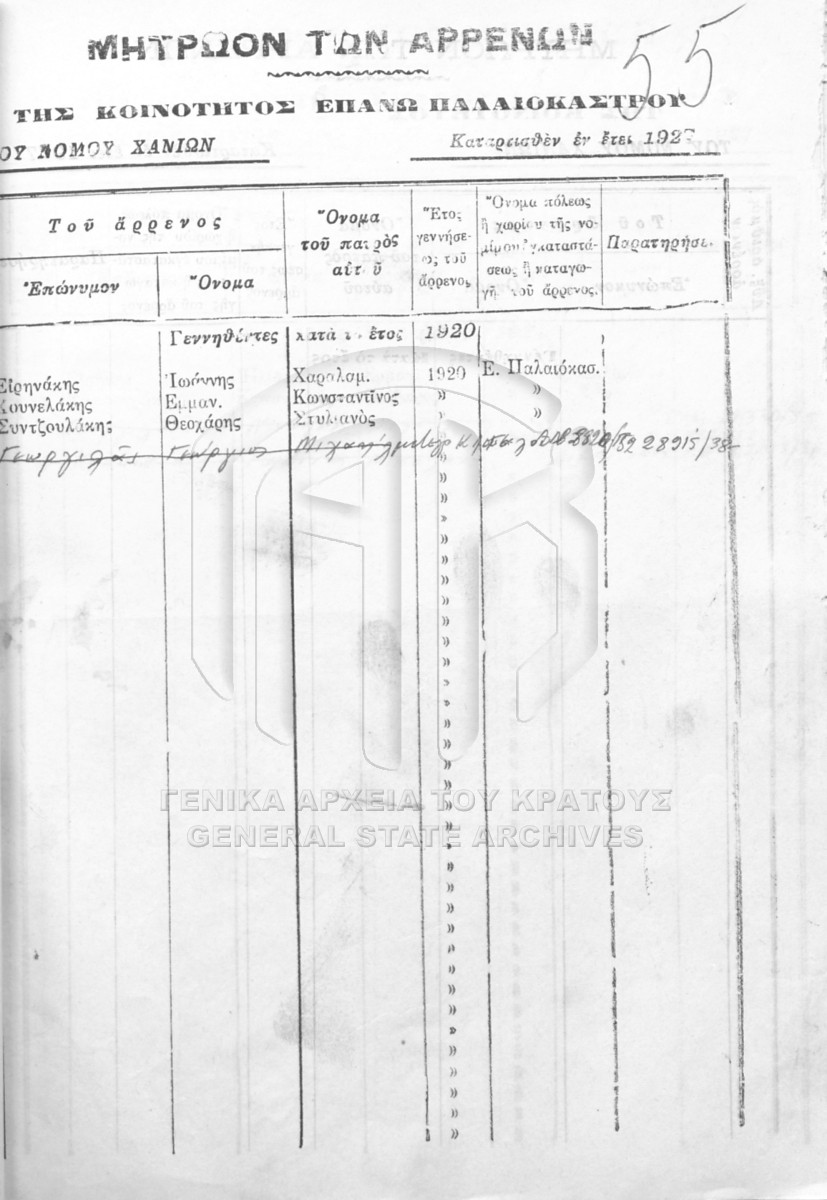 55
ΜΗΤΡΩΟΝ ΤΩΝ ΑΡΡΕΝΩΝ
ΤΗΣ ΚΟΙΝΟΤΗΤΟΣ ΕΠΑΝΩ ΠΑΛΑΙΟΚΑΣΤΡΟΥ
ΟΥ ΝΟΜΟΥ ΧΑΝΙΩΝ
Καταρτισθὲν ἐν ἔτει 192
Τοῦ ἄρρενος
Ἐπώνυμον
Ὄνομα
Ὄνομα
τοῦ πατρὸς
αὐτοῦ
Ἔτος
γεννήσε-
ως τοῦ
ἄρρενος
Ὄνομα πόλεως
ἢ χωρίου τῆς νο-
μίμου ἐγκαταστά-
σεως ἢ καταγω-
γῆς τοῦ ἄρρενος.
Παρατηρήσε.
Γεννηθέντες κατὰ τὸ ἔτος 1920
Εἰρηνάκης Ἰωάννης Χαραλαμ. 1920 Ε. Παλαιόκασ.
Κουνελάκης Εμμαν. Κωνσταντῖνος » »
Συντζουλάκης Θεοχάρης Στυλιανὸς » »
Γεωργιλᾶς Γεώργιος 28915/38
ΓΕΝΙΚΑ ΑΡΧΕΙΑ ΤΟΥ ΚΡΑΤΟΥΣ
GENERAL STATE ARCHIVES